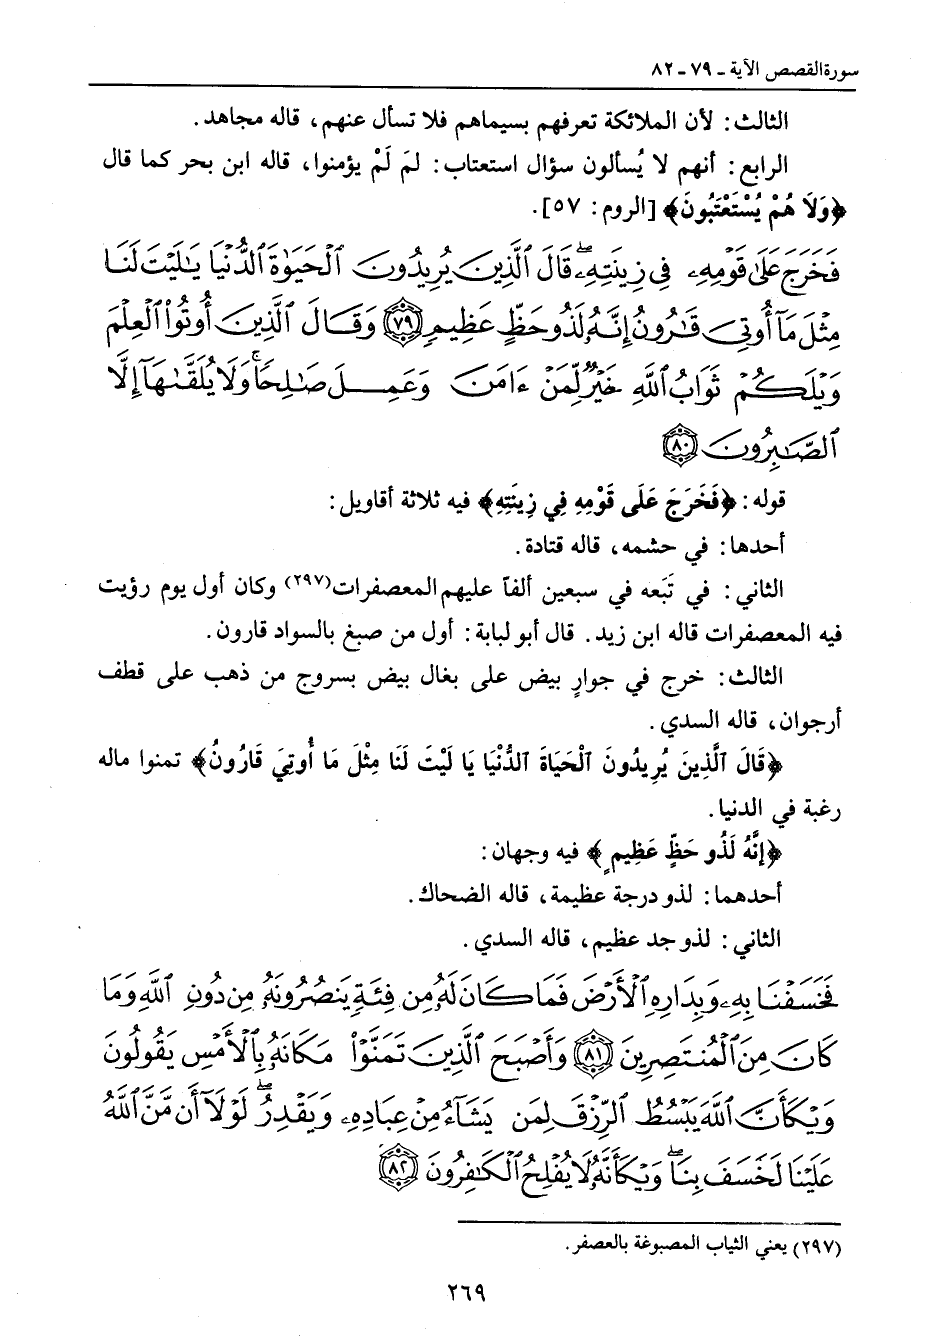 سورة القصص الآية ـ ٧٩ ـ ٨٢
الثالث: لأن الملائكة تعرفهم بسيماهم فلا تسأل عنهم، قاله مجاهد.
الرابع: أنهم لا يُسألون سؤال استعتاب: لمَ لَمْ يؤمنوا، قاله ابن بحر كما قال
﴿وَلَا هُمْ يُسْتَعْتَبُونَ﴾ [الروم: ٥٧].
فَخَرَجَ عَلَىٰ قَوْمِهِۦ فِي زِينَتِهِۦۖ قَالَ ٱلَّذِينَ يُرِيدُونَ ٱلْحَيَوٰةَ ٱلدُّنْيَا يَٰلَيْتَ لَنَا
مِثْلَ مَآ أُوتِيَ قَٰرُونُ إِنَّهُۥ لَذُو حَظٍّ عَظِيمٍ ﴿٧٩﴾ وَقَالَ ٱلَّذِينَ أُوتُوا۟ ٱلْعِلْمَ
وَيْلَكُمْ ثَوَابُ ٱللَّهِ خَيْرٌ لِّمَنْ ءَامَنَ وَعَمِلَ صَٰلِحًاۚ وَلَا يُلَقَّىٰهَآ إِلَّا
ٱلصَّٰبِرُونَ ﴿٨٠﴾
قوله: ﴿فَخَرَجَ عَلَى قَوْمِهِ فِي زِينَتِهِ﴾ فيه ثلاثة أقاويل:
أحدها: في حشمه، قاله قتادة.
الثاني: في تَبَعه في سبعين ألفاً عليهم المعصفرات(٢٩٧) وكان أول يوم رؤيت
فيه المعصفرات قاله ابن زيد. قال أبو لبابة: أول من صبغ بالسواد قارون.
الثالث: خرج في جوارٍ بيض على بغال بيض بسروج من ذهب على قطف
أرجوان، قاله السدي.
﴿قَالَ ٱلَّذِينَ يُرِيدُونَ ٱلْحَيَاةَ ٱلدُّنْيَا يَا لَيْتَ لَنَا مِثْلَ مَا أُوتِيَ قَارُونُ﴾ تمنوا ماله
رغبة في الدنيا.
﴿إِنَّهُ لَذُو حَظٍّ عَظِيمٍ﴾ فيه وجهان:
أحدهما: لذو درجة عظيمة، قاله الضحاك.
الثاني: لذو جد عظيم، قاله السدي.
فَخَسَفْنَا بِهِۦ وَبِدَارِهِ ٱلْأَرْضَ فَمَا كَانَ لَهُۥ مِن فِئَةٍ يَنصُرُونَهُۥ مِن دُونِ ٱللَّهِ وَمَا
كَانَ مِنَ ٱلْمُنتَصِرِينَ ﴿٨١﴾ وَأَصْبَحَ ٱلَّذِينَ تَمَنَّوْا۟ مَكَانَهُۥ بِٱلْأَمْسِ يَقُولُونَ
وَيْكَأَنَّ ٱللَّهَ يَبْسُطُ ٱلرِّزْقَ لِمَن يَشَآءُ مِنْ عِبَادِهِۦ وَيَقْدِرُۖ لَوْلَآ أَن مَّنَّ ٱللَّهُ
عَلَيْنَا لَخَسَفَ بِنَاۖ وَيْكَأَنَّهُۥ لَا يُفْلِحُ ٱلْكَٰفِرُونَ ﴿٨٢﴾
(٢٩٧) يعني الثياب المصبوغة بالعصفر.
٢٦٩